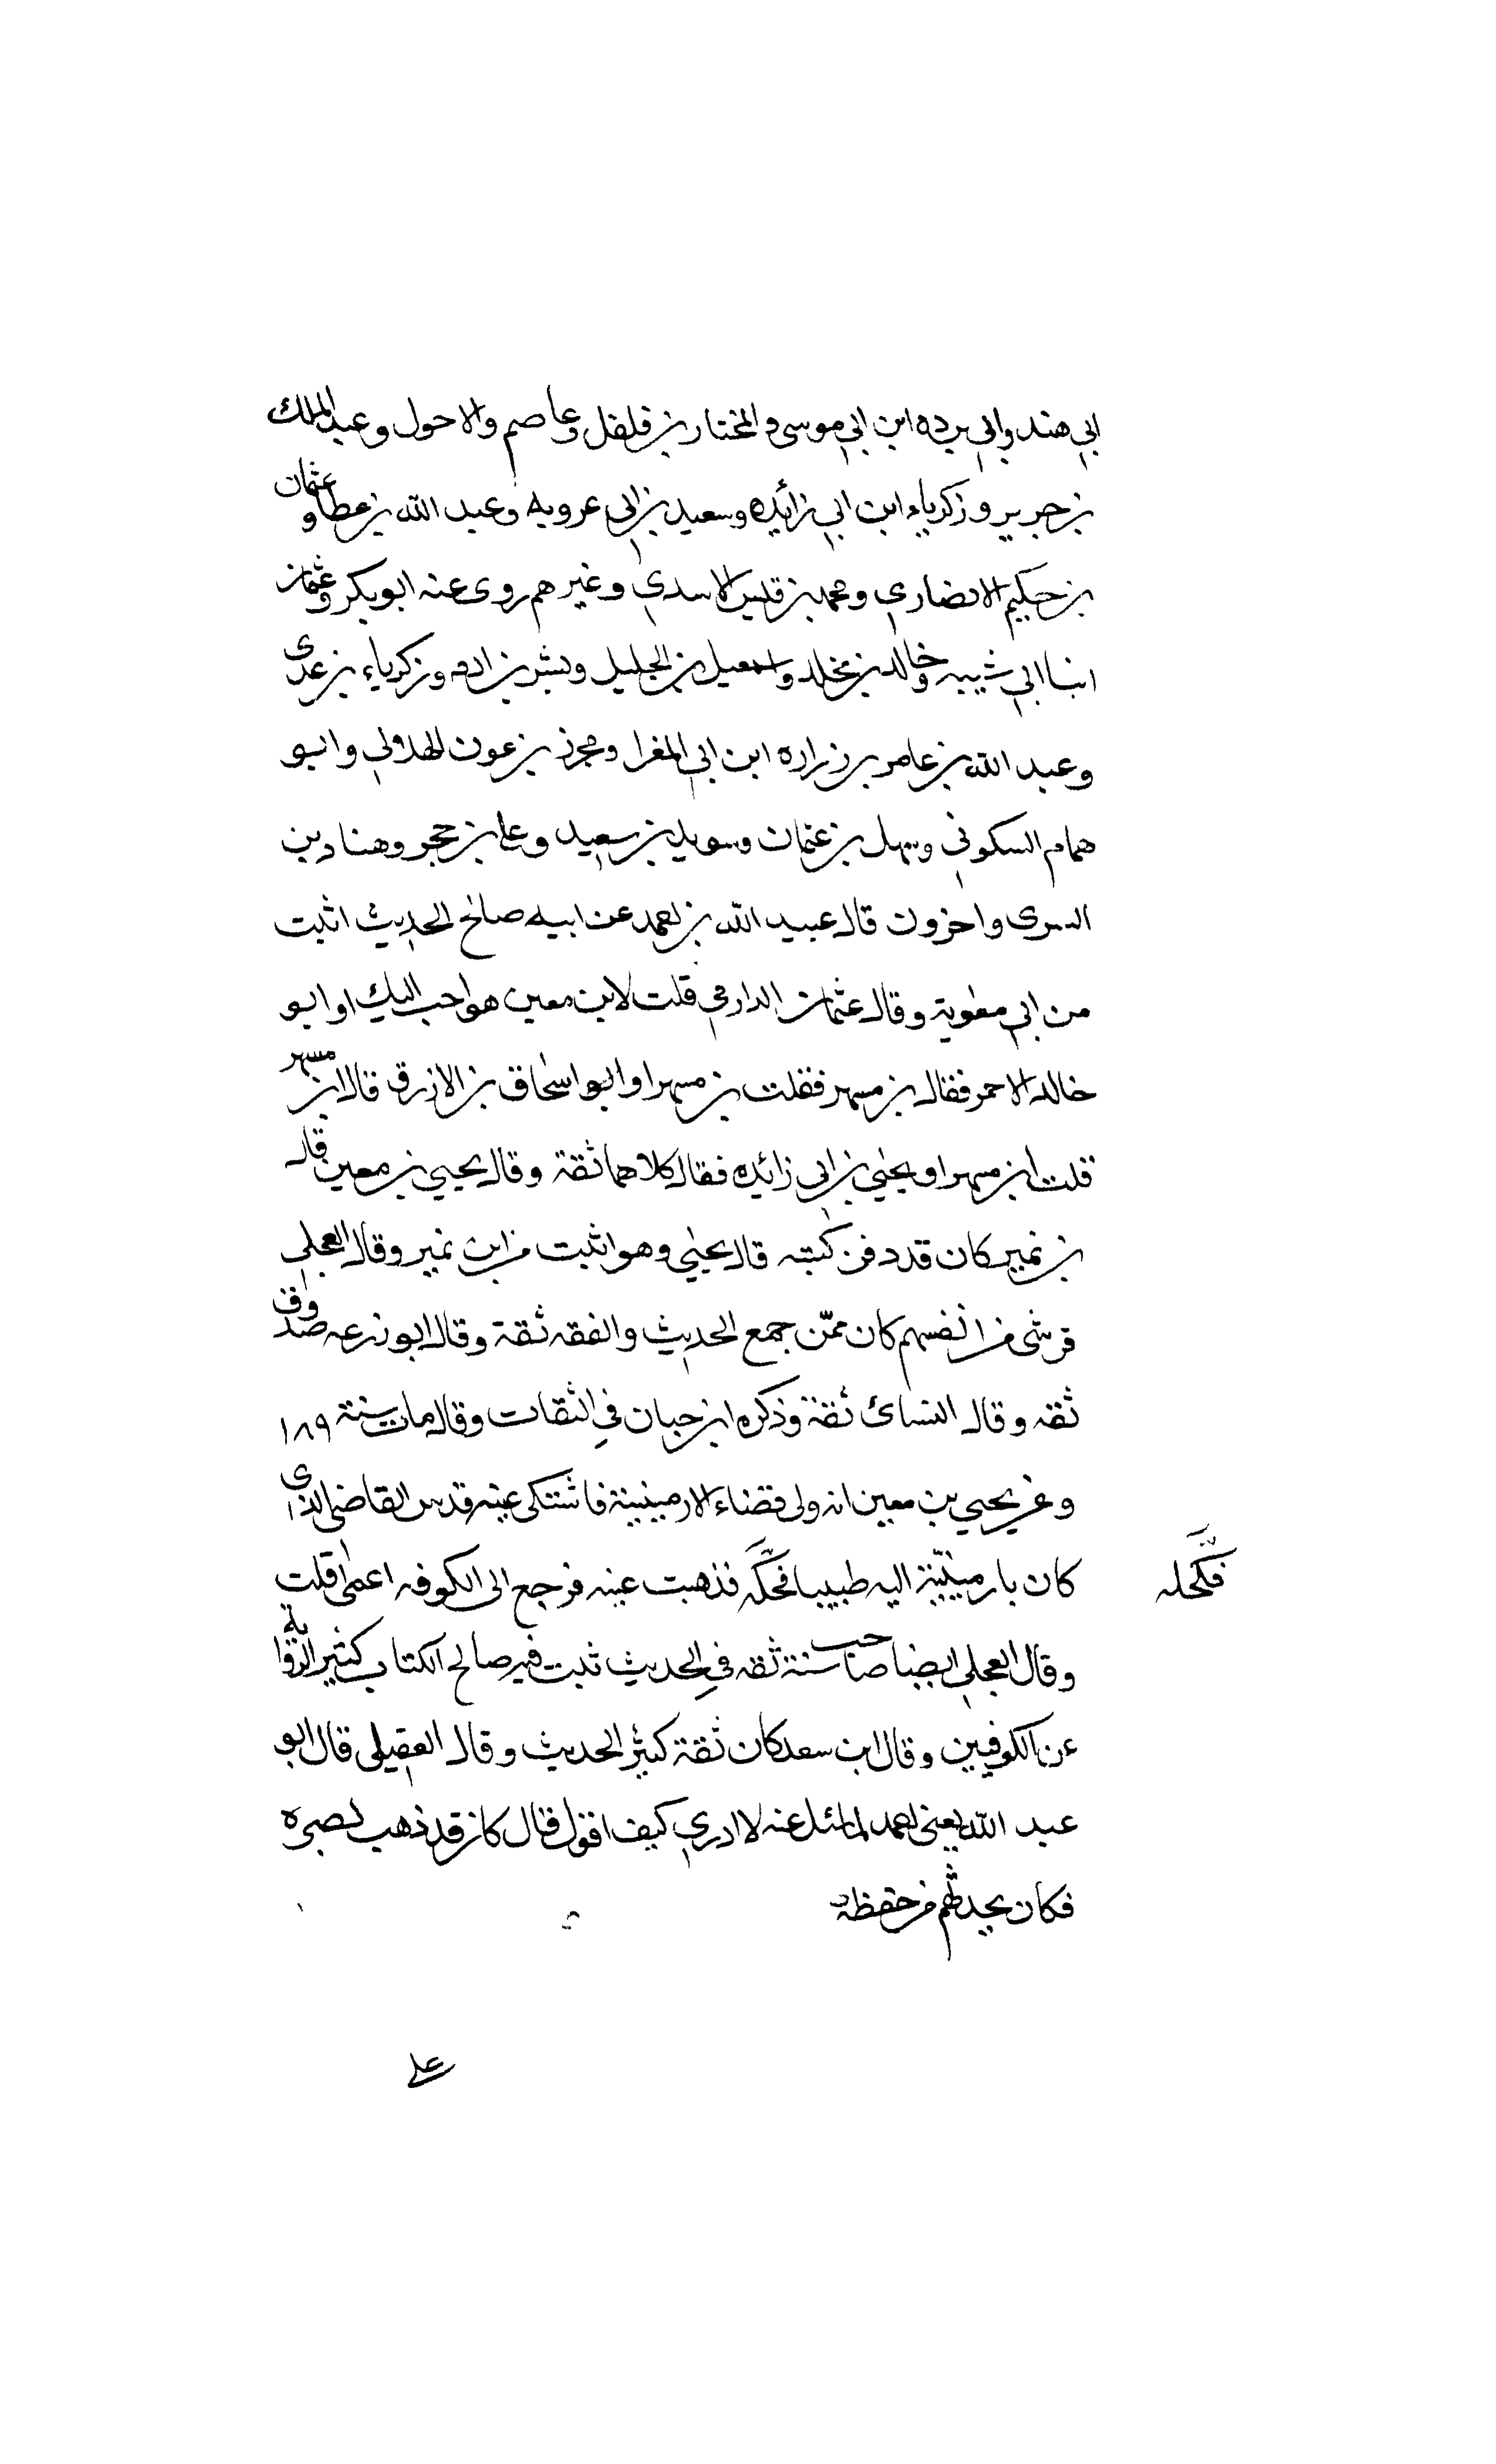 ابي هند وابي برده ابن ابي موسى و المختار بن فلفل وعاصم والاحول وعبد الملك
بن جرير وزكرياء ابن ابي زائده وسعيد بن ابي عروبه وعبد الله بن عطا وعثمان
بن حكيم الانصاري ومحمد بن قيس الاسدي وغيرهم روى عنه ابو بكر وعثمان
ابنا ابي شيبه وخالد بن مخلد واسمعيل بن الخليل وبشر بن ادم وزكرياء بن عدى
وعبد الله بن عامر بن زراره ابن ابي المغرا ومحرز بن عون الهلالي وابو
همام السكوني وسهل بن عثمان وسويد بن سعيد وعلي بن حجر وهناد بن
السرى واخرون قال عبيد الله بن احمد عن ابيه صالح الحديث اثبت
من ابي معوية وقال عثمان الدارمي قلت لابن معين هو احب اليك او ابو
خالد الاحمر فقال بن مسهر فقلت بن مسهر او ابو اسحاق بن الازرق قال ابن مسهر
قلت ابن مسهر او يحيي بن ابي زائده فقال كلاهما ثقة وقال يحيي بن معين قال
بن نمير كان قد دفن كتبه قال يحيي وهو اثبت من ابن نمير وقال العجلي
قرشى من انفسهم كان ممّن جمع الحديث والفقه ثقة وقال ابو زرعه صدوق
ثقه وقال النسائ ثقة وذكره ابن حبان في الثقات وقال مات سنة ١٨٩
وعن يحيي بن معين انه ولى قضاء الارمينية فاشتكى عينه فدس القاضى الذى
كان بارمينيّة اليه طبيبا فكحّله فذهبت عينه فرجع الى الكوفه اعمى قلت
فكحّله
وقال العجلي ايضا صاحب سنة ثقه في الحديث ثبت فيه صالح الكتاب كثير الرواية
عن الكوفيين وقال ابن سعد كان ثقة كثير الحديث وقال العقيلى قال ابو
عبد الله يعنى احمد لما سئل عنه لا ادري كيف اقول قال كان قد ذهب بصره
فكان يحدثهم من حفظه
على